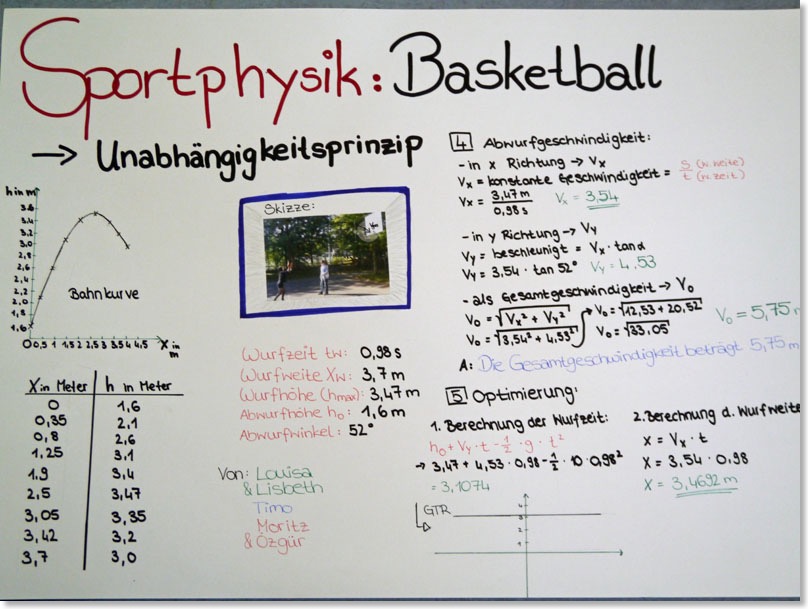 Sportphysik: Basketball
→ Unabhängigkeitsprinzip
h in m
3.6
3.4
3.2
3.0
2,8
2,6
2,4
2,2
2,0
1,8
1,6
Bahnkurve
0 0,5 1 1,5 2 2,5 3 3,5 4 4,5 X in m
X in Meter h in Meter
0 1,6
0,35 2,1
0,8 2,6
1,25 3,1
1,9 3,4
2,5 3,47
3,05 3,35
3,42 3,2
3,7 3,0
Skizze:
Wurfzeit tw: 0,98 s
Wurfweite Xw: 3,7 m
Wurfhöhe (hmax): 3,47 m
Abwurfhöhe h₀: 1,6 m
Abwurfwinkel: 52°
Von: Louisa
& Lisbeth
Timo
Moritz
& Özgür
4 Abwurfgeschwindigkeit:
- in x Richtung → Vx
Vx = konstante Geschwindigkeit = S (w.weite) / t (w.zeit)
Vx = 3,47 m / 0,98 s Vx = 3,54
- in y Richtung → Vy
Vy = beschleunigt = Vx · tan α
Vy = 3,54 · tan 52° Vy = 4.53
- als Gesamtgeschwindigkeit → V₀
V₀ = √Vx² + Vy² V₀ = √12,53 + 20,52
V₀ = √3,54² + 4,53² V₀ = √33,05 V₀ = 5,75
A: Die Gesamtgeschwindigkeit beträgt 5,75 m
5 Optimierung:
1. Berechnung der Wurfzeit:
h₀ + Vy · t - ½ · g · t²
→ 3,47 + 4,53 · 0,98 - ½ · 10 · 0,98²
= 3,1074
GTR
4
3
2
1
2. Berechnung d. Wurfweite
X = Vx · t
X = 3,54 · 0,98
X = 3,4692 m